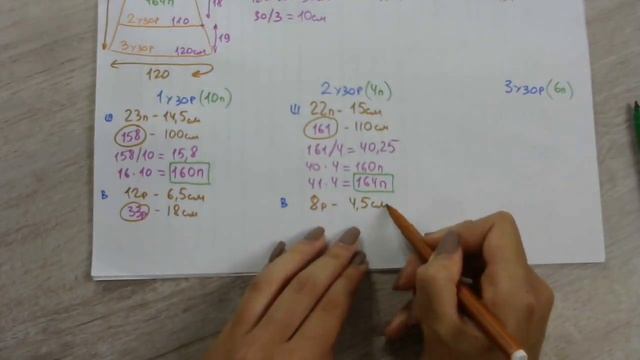 164п
2 узор 110
3 узор 120см
120
18
19
30/3 = 10см
1 узор (10п)
ш 23п - 14,5см
158 - 100см
158/10 = 15,8
16·10 = 160п
в 12р - 6,5см
33р - 18см
2 узор (4п)
ш 22п - 15см
161 - 110см
161/4 = 40,25
40·4 = 160п
41·4 = 164п
в 8р - 4,5см
3 узор (6п)